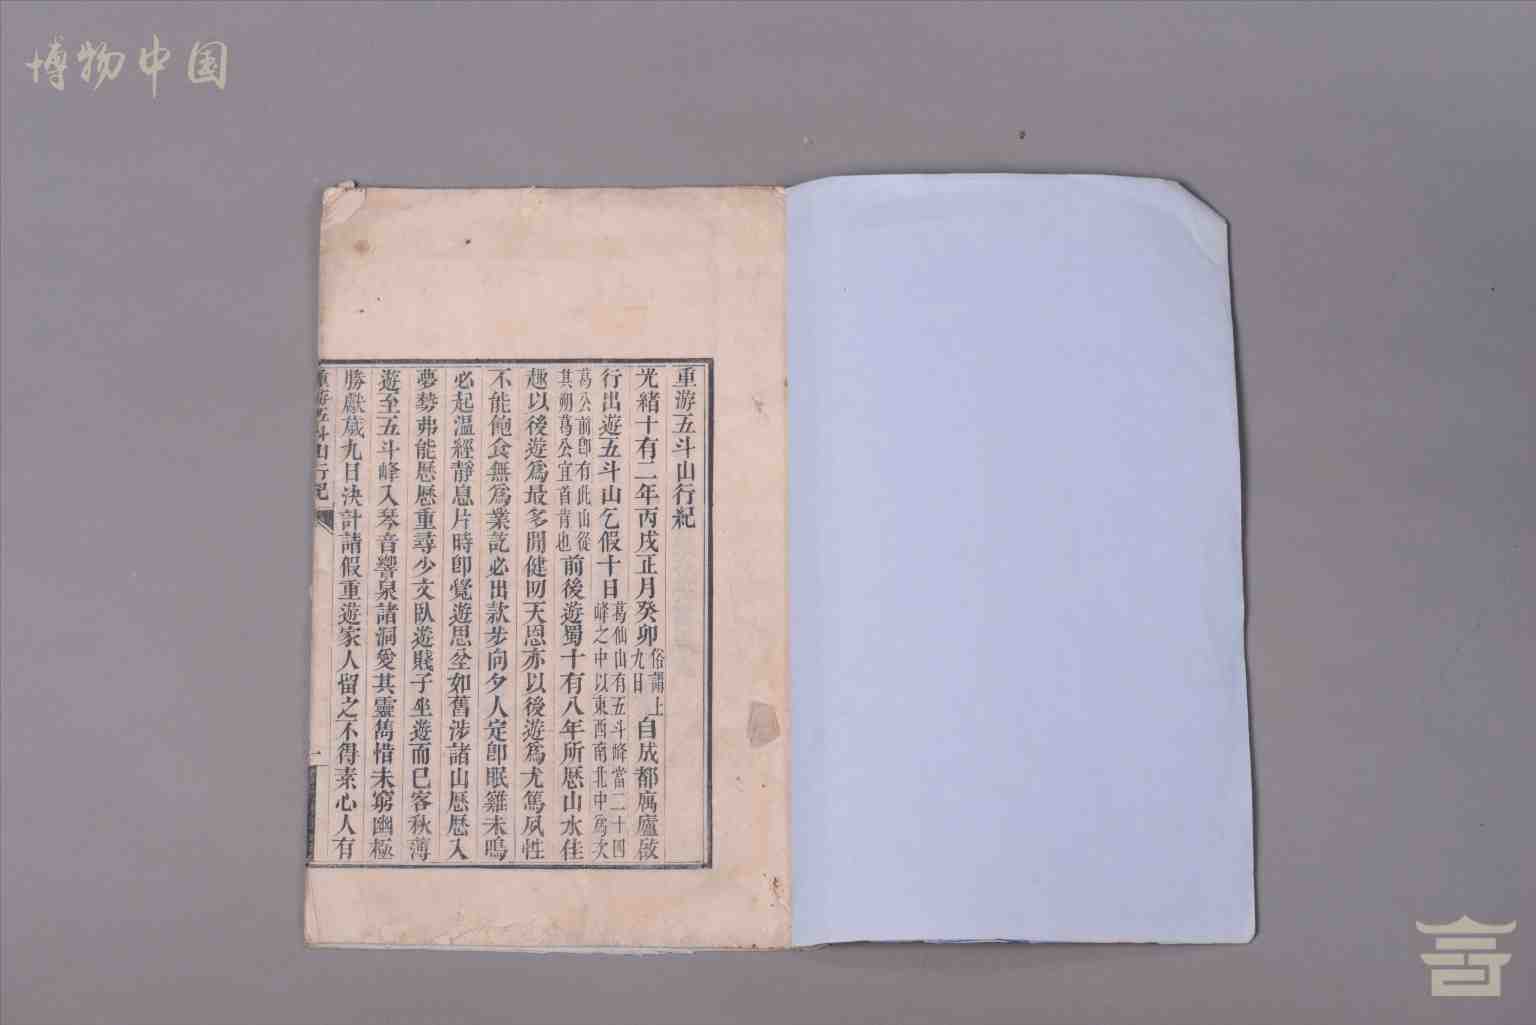 博物中国
重游五斗山行紀
光緒十有二年丙戌正月癸卯俗謂上九日自成都寓廬啟
行出遊五斗山乞假十日葛仙山有五斗峰當二十四峰之中以東西南北中為次
葛公前即有此山從其朔葛公宜首肯也前後遊蜀十有八年所歷山水佳
趣以後遊為最多閒健罔天恩亦以後遊為尤篤夙性
不能飽食無為業訖必出款步向夕人定即眠雞未鳴
必起溫經靜息片時即覺遊思坌如舊涉諸山歷歷入
夢勢弗能歷歷重尋少文臥遊賤子坐遊而已客秋薄
遊至五斗峰入琴音響泉諸洞愛其靈雋惜未窮幽極
勝獻歲九日決計請假重遊家人留之不得素心人有
重游五斗山行紀
一